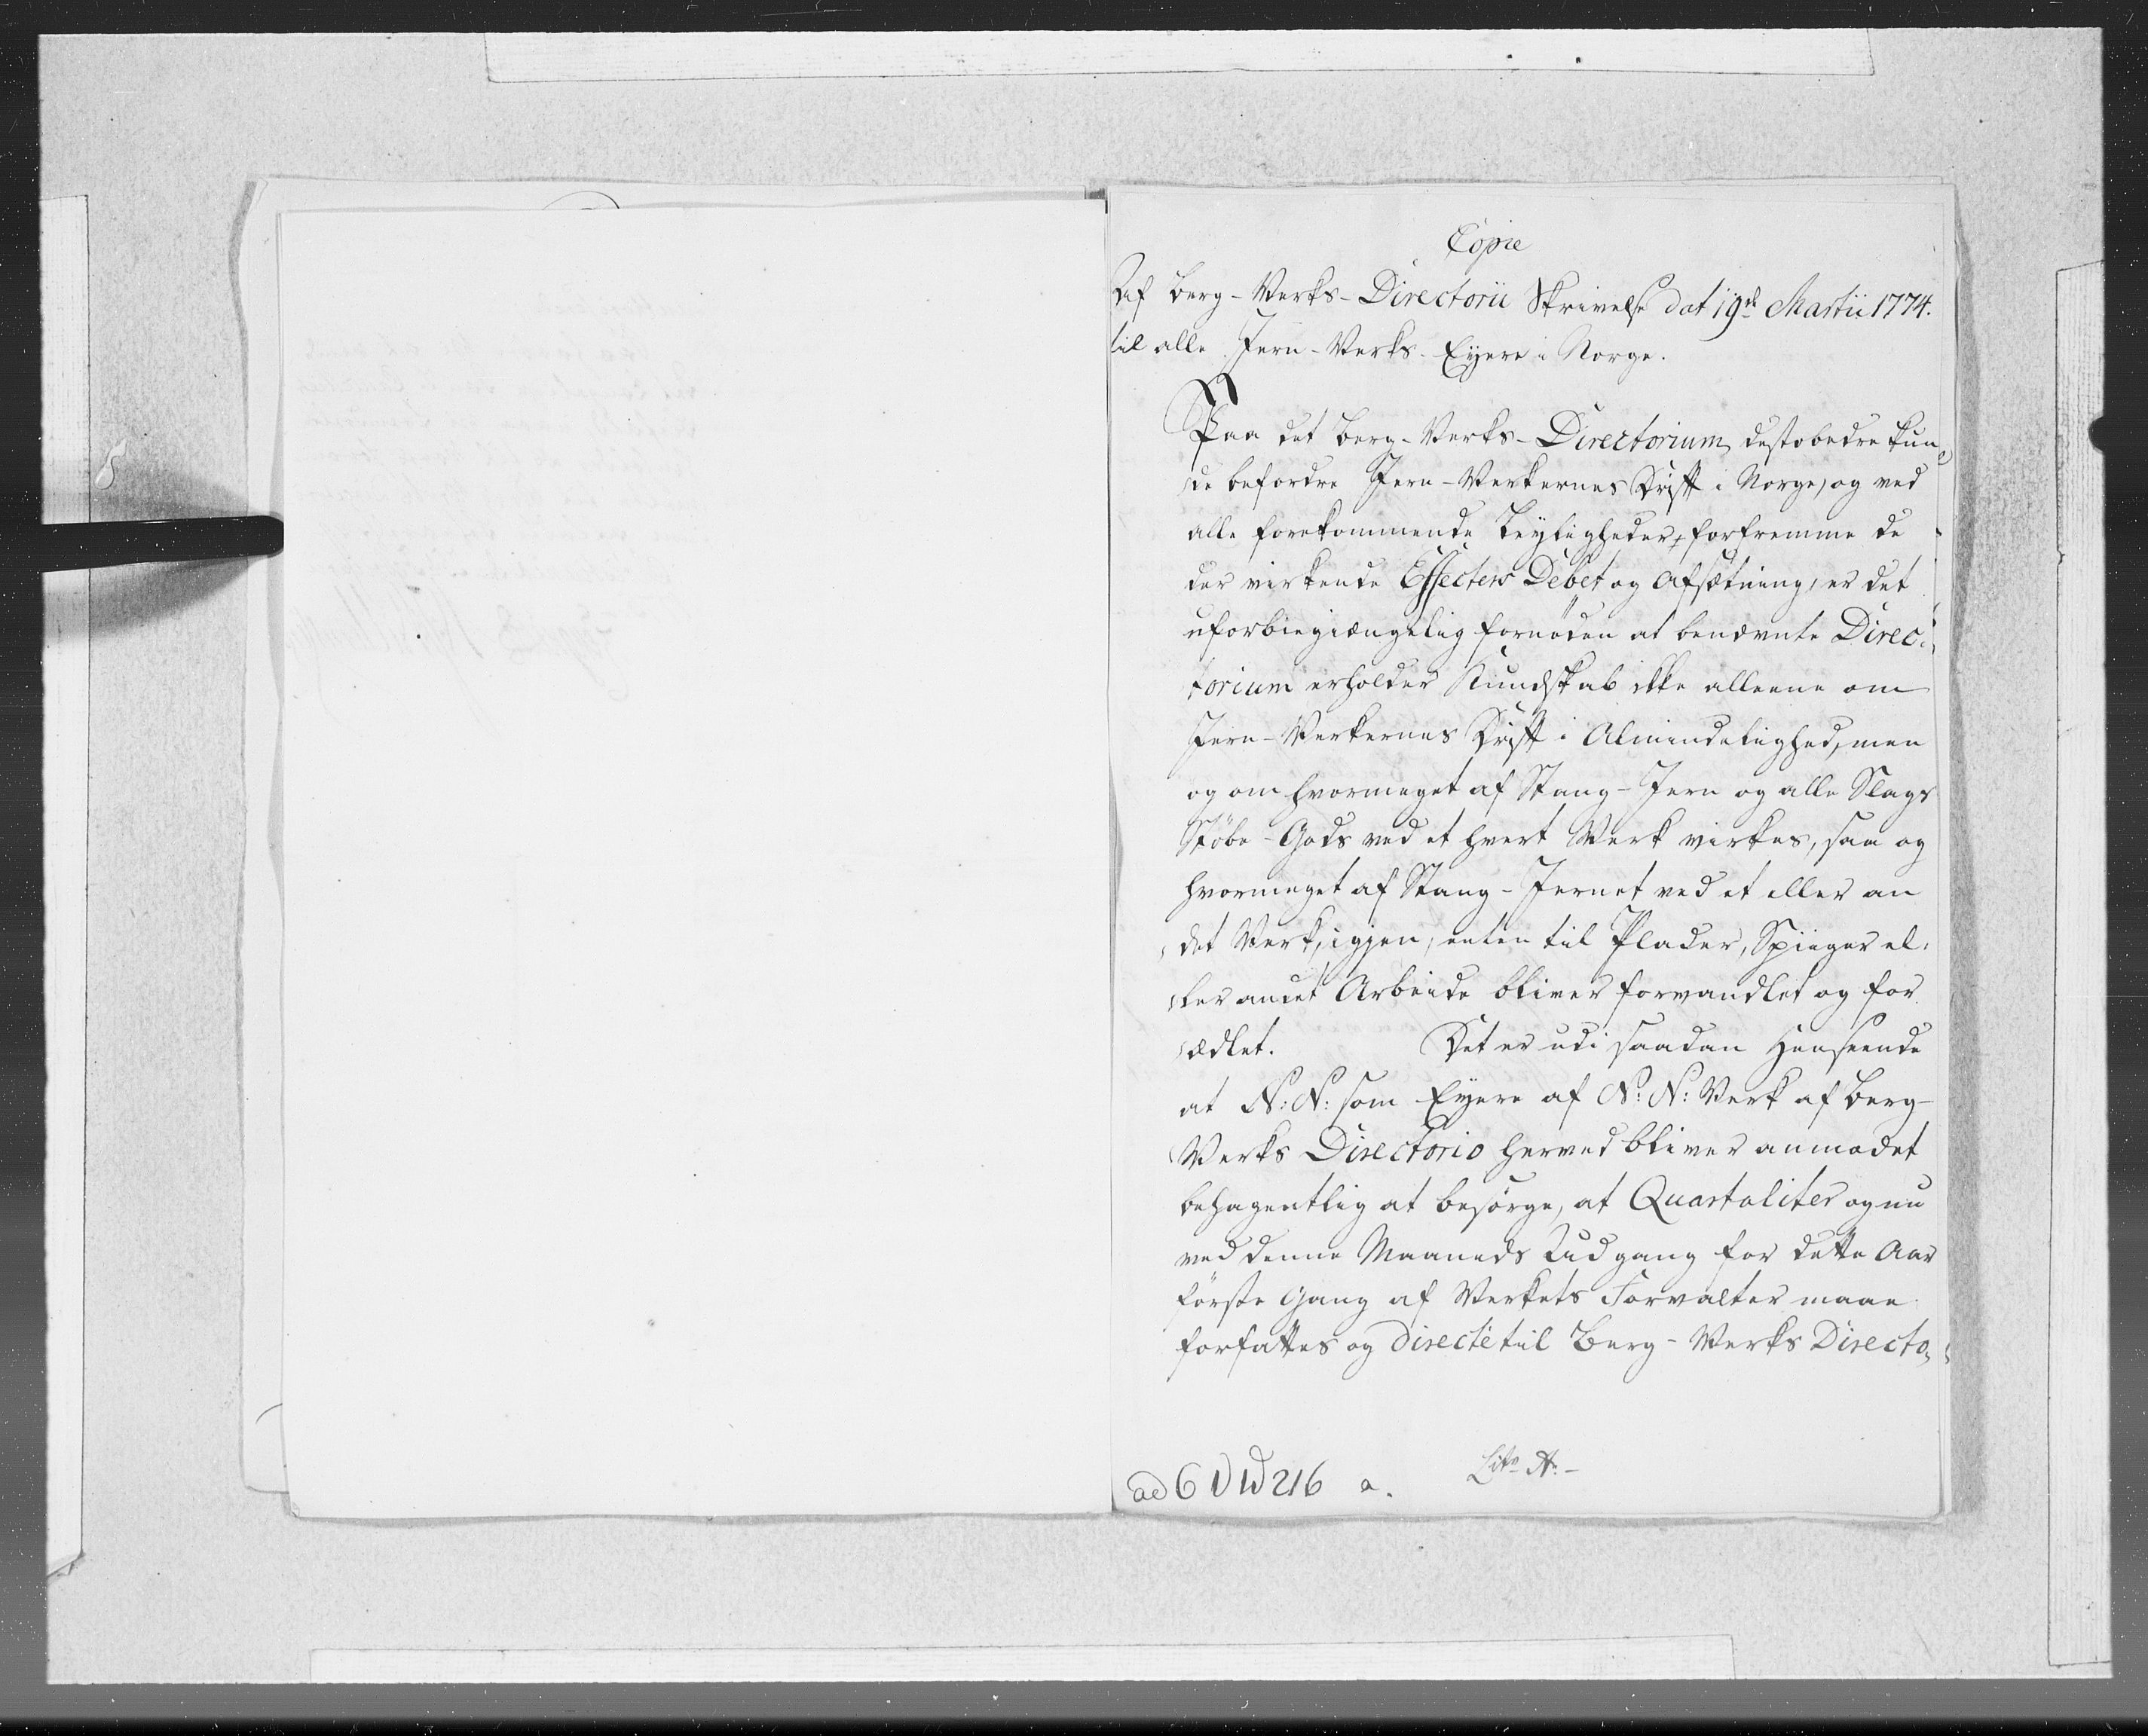 Copie
Af Berg-Verks-Directorii Skrivelse dat 19de Martii 1774.
til alle Jern-Verks-Eyere i Norge.
Paa det Berg-Verks-Directorium, destobedre kun-
de befordre Jern-Verkernes Drift i Norge, og ved
alle forekommende Leyligheder, forfremme de
der virkende Effecters Debet og Afsætning, er det
uforbiegiængelig fornøden at benævnte Direc-
torium erholder Kundskab ikke alleene om
Jern-Verkernes Drift i Almindelighed, men
og om hvormeget af Stang-Jern og alle Slags
Støbe-Gods ved et hvert Verk virkes, saa og
hvormeget af Stang-Jernet ved et eller an
det Verk, igjen, enten til Plader, Spiiger el-
ler andet Arbeide bliver forvandlet og for
ædlet. Det er udi saadan Henseende
at N: N: som Eyere af N: N: Verk af Berg-
Verks Directorio herved bliver anmodet
behagentlig at besørge, at Quartaliter og nu
ved denne Maaneds Udgang for dette Aar
første Gang af Verkets Forvalter maae
forfattes og directè til Berg-Verks Directo-
Litr A: